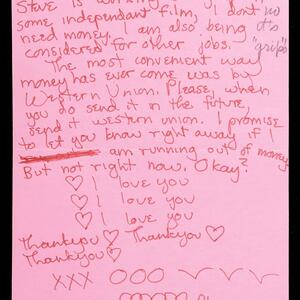 Steve is working
some independant film, I dont
need money. I am also being
considered for other jobs.
no
it's
"grips"
The most convenient way
money has ever come was by
Western Union. Please, when
you do send it in the future,
send it western union. I promise
to let you know right away if I
am running out of money
But not right now, Okay?
♡ I love you
♡ I love you
♡ I love you
Thankyou ♡ Thankyou ♡
Thankyou ♡
XXX OOO